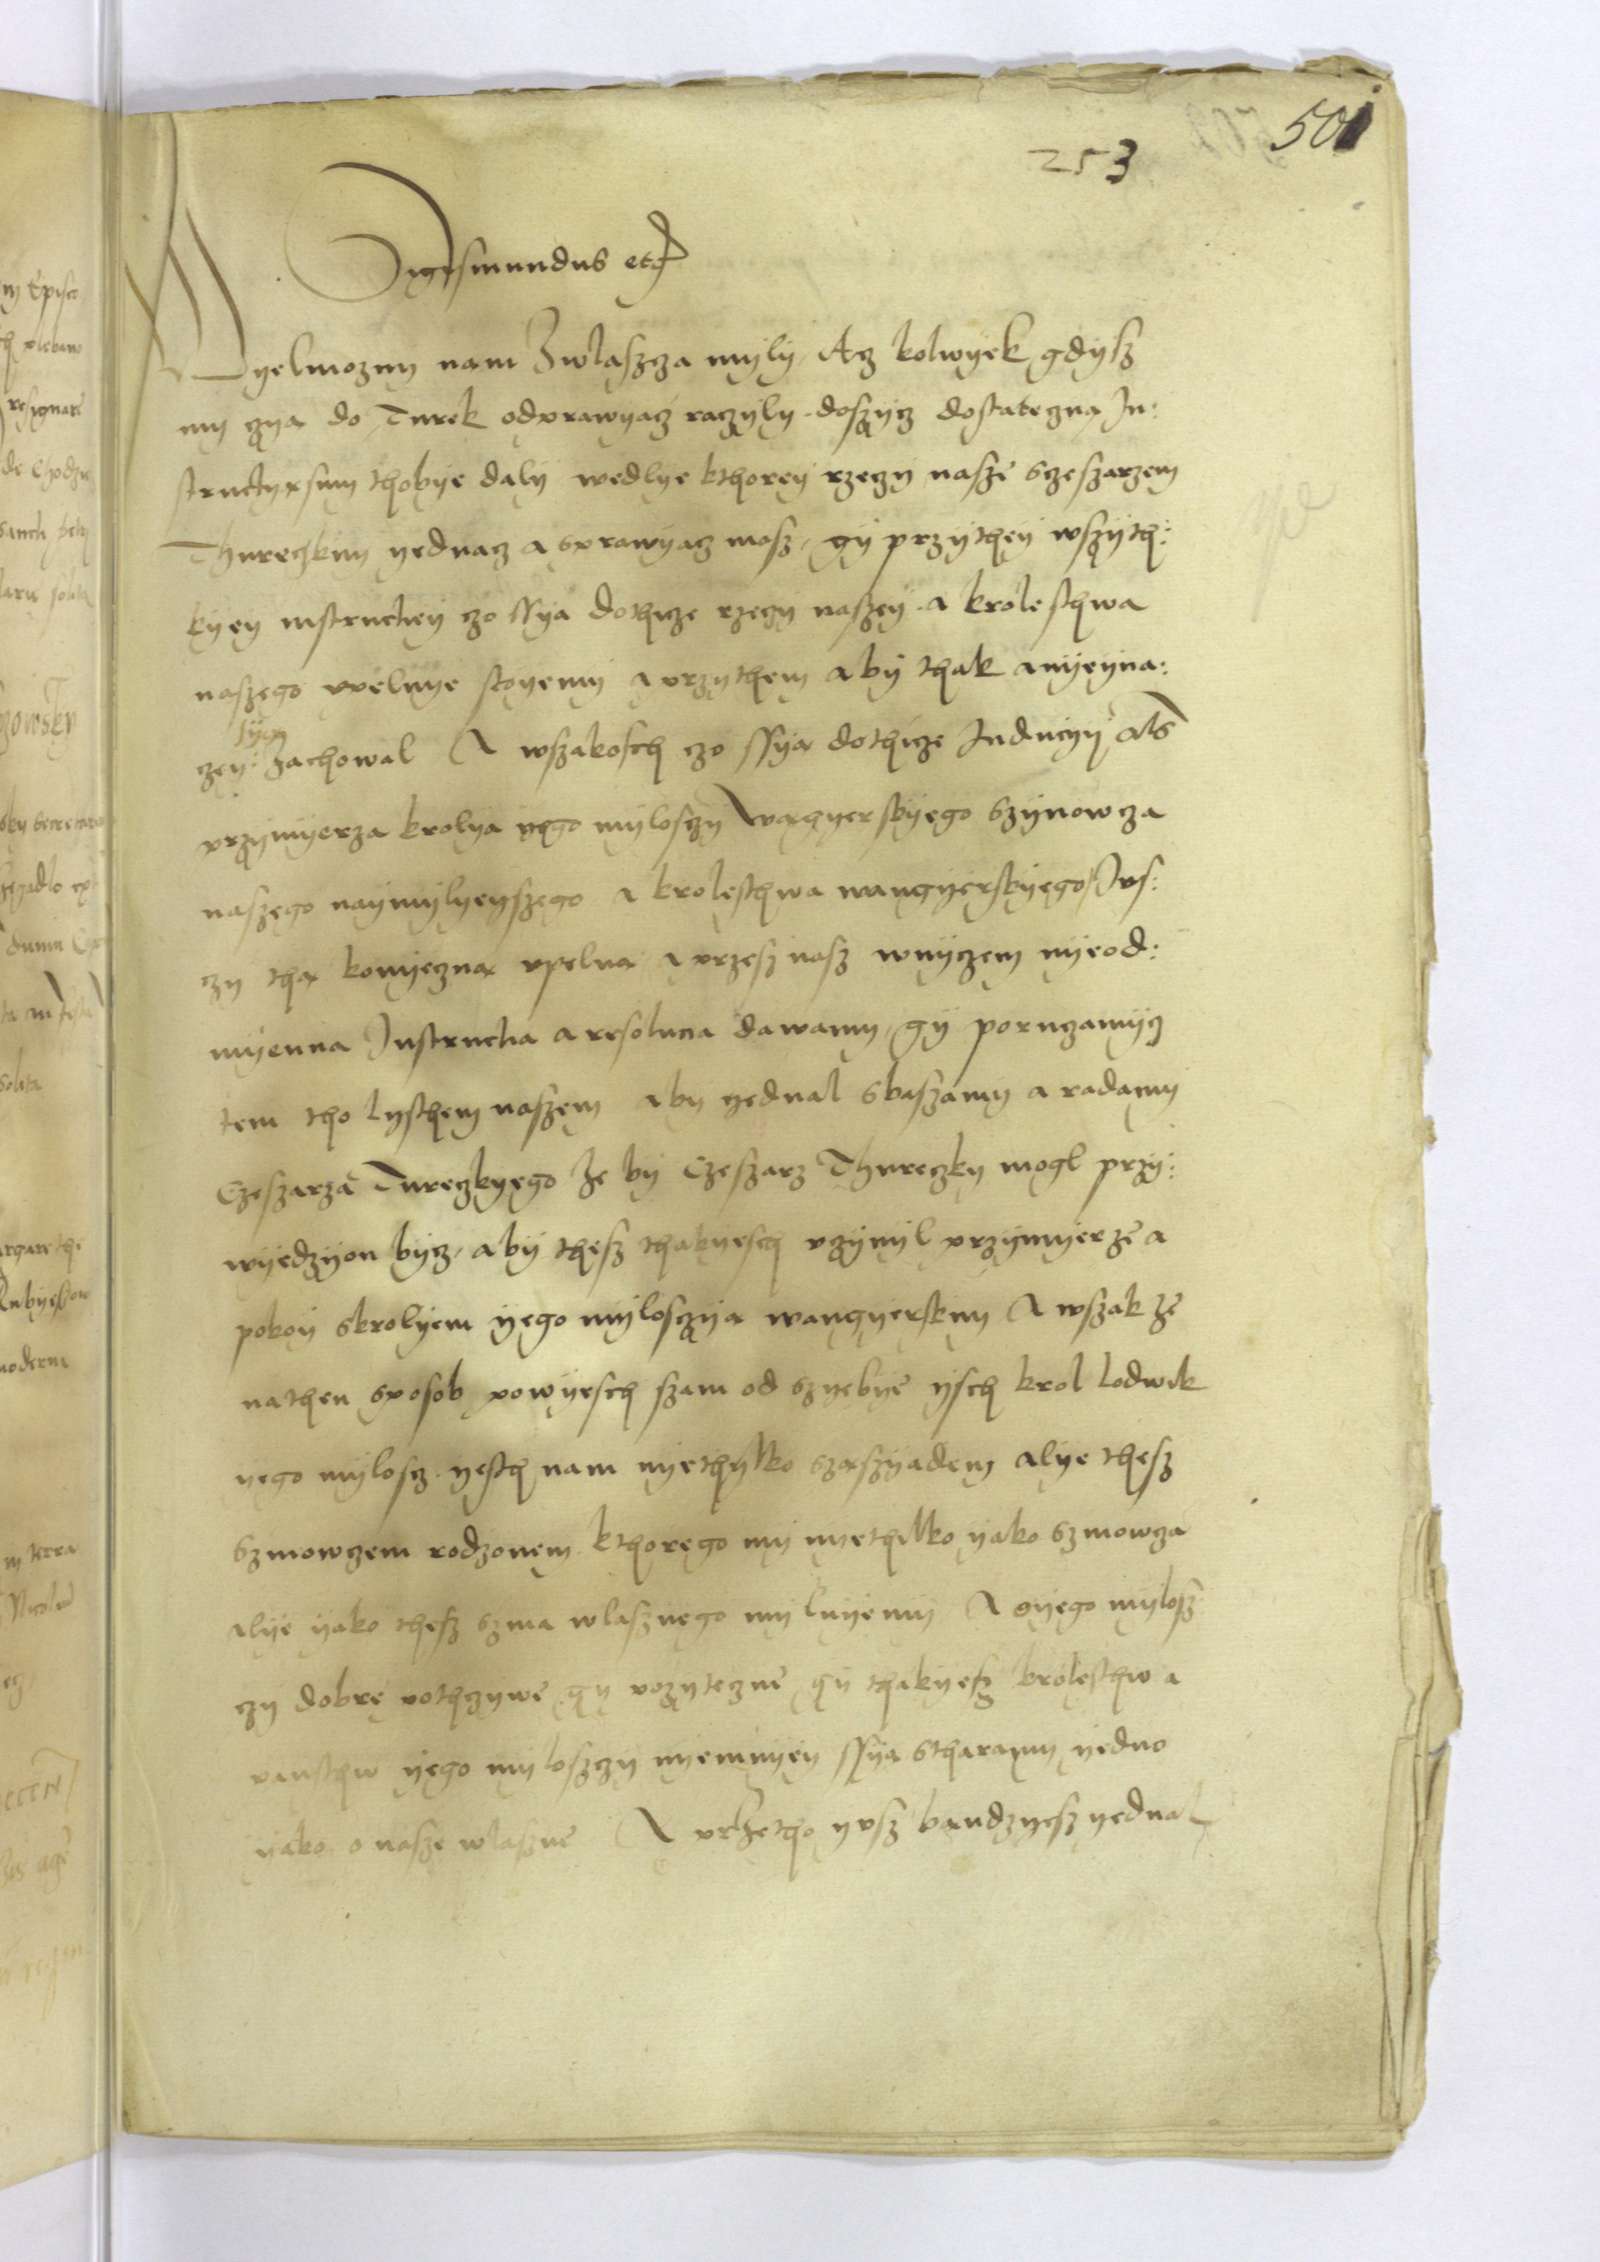 501
253
Sigismundus etc
Wyelmozny nam Zwlaszcza myly, Acz kolwyek gdysz
my czya do Turek odprawyacz raczyly doszycz dostateczna In:
structyąsmy thobye daly wedlye kthorey rzeczy nasze sczeszarzem
Thureczkim yednacz a sprawyacz masz, gy przythey wszyth:
kyey instructiey czo ssya dothicze rzeczy naszey a krolesthwa
naszego vpelnye stoyemy a przythem aby thak anyeyna:
czey: Zachowal A wszakosch czo ssya dothicze Induciy als
przymyerza krolya yego myloszczy wągyerskyego Szynowcza
naszego naymylyeyszego a krolesthwa wangyerskyego
czy tha konyeczna vpelna a przesz nasz wnyczem nyeod:
myenna Instructia a resolucia dawamy, gy poruczamycz
tem tho lysthem naszem aby yednal sbaszamy a radamy
Czeszarza Tureczkyego Ze by Czeszarz Thureczky mogl przy:
wyedzyon bycz, aby thesz thakyesch vczynyl przymyerze a
pokoy skrolyem yego mylosczya wangyerskym A wszak ze
nathen sposob powyesch szam od szyebye ysch krol Lodwik
yego mylosc yesth nam nyethylko szaszyadem alye thesz
Sznowczem rodzonem kthorego my nyethilko yako sznowcza
alye yako thesz szina wlasznego myluyemy A oyego mylosz
czy dobre pothczywe gy pozyteczne gy thakyesz krolesthw a
pansthw yego myloszczy nyemnyey ssya stharamy yedno
yako o nasze wlaszne A przetho yusz bandzyesz yednal